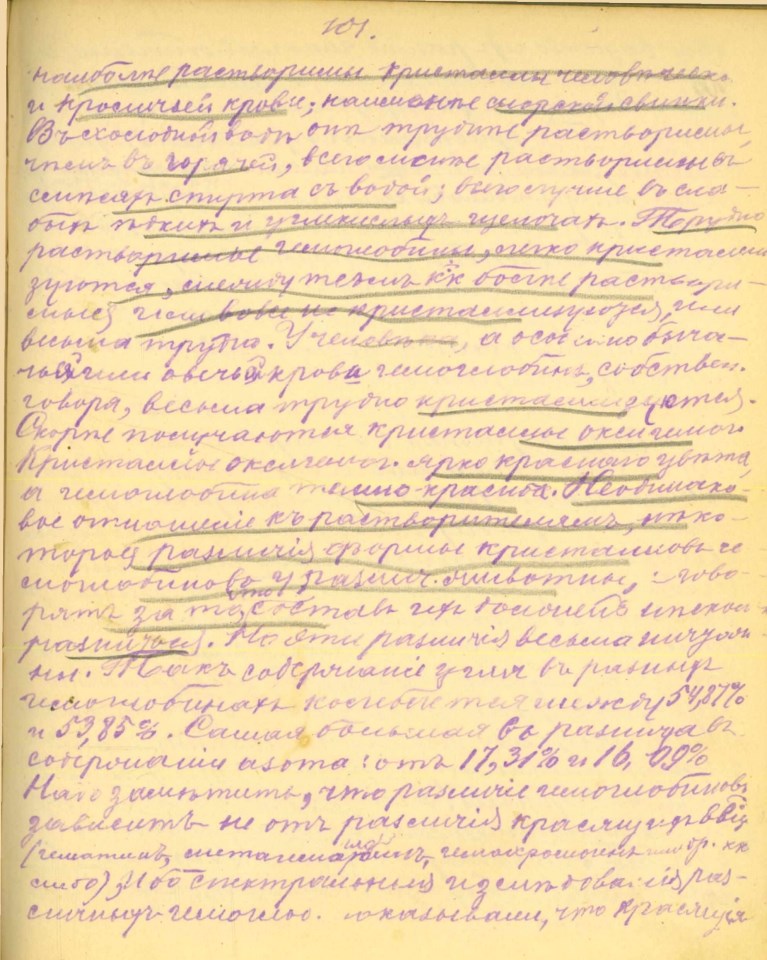 101.
наиболѣе растворимы кристаллы человѣческ.
и кроличьей крови; наименѣе морской свинки.
Въ холодной водѣ они труднѣе растворимы,
чѣмъ въ горячей, всего менѣе растворимы въ
смѣсяхъ спирта съ водой; всего лучше въ сла-
быхъ ѣдкихъ и углекислыхъ щелочахъ. Трудно
растворимые гемоглобины, легко кристалли
зуются, между тѣмъ кк болѣе раствори-
мые вовсе не кристаллизуются, или
весьма трудно. У а особенно быча-
чьей или овечьей крови гемоглобинъ, собствен.
говоря, весьма трудно кристаллизуется.
Скорѣе получаются кристаллы оксигемог.
Кристаллы оксигемог. ярко краснаго цвѣта,
а гемоглобина темно-красны. Неодинако-
вое отношеніе къ растворителямъ, нѣко-
торыя различія формы кристалловъ ге-
моглобиновъ у различ. животныхъ, гово-
рятъ за то, что составъ ихъ долженъ нѣсколько
различаться. Но эти различія весьма ничтож-
ны. Такъ содержаніе угля въ разныхъ
гемоглобинахъ колеблется между 54,87%
и 53,85%. Самая большая разница въ
содержаніи азота: отъ 17,31% и 16,09%
Надо замѣтить, что различіе гемоглобиновъ
зависитъ не отъ различія красящихъ вещ
(гематинъ, гемохромогенъ или др. кк
либо), ибо спектральныя изслѣдованія раз-
личныхъ гемогло. показывали, что красящія